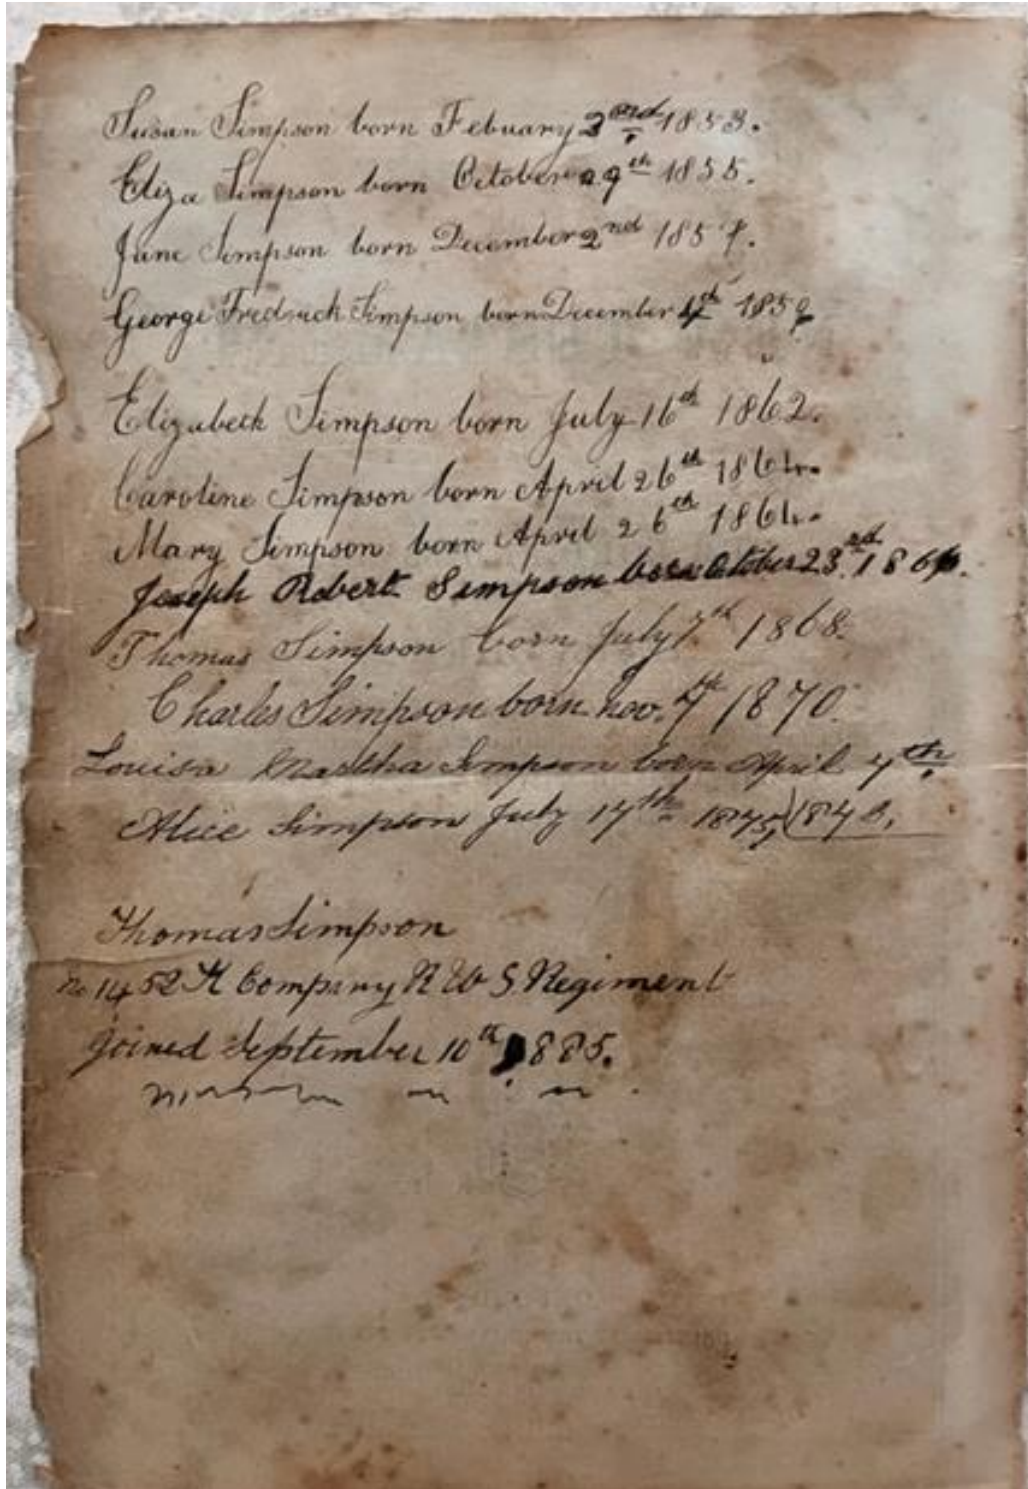 Susan Simpson born Febuary 2nd 1853.
Eliza Simpson born October 29th 1855.
Jane Simpson born December 2nd 1857.
George Fredrick Simpson born December 4th 1859
Elizabeth Simpson born July 16th 1862.
Caroline Simpson born April 26th 1864.
Mary Simpson born April 26th 1864.
Joseph Robert Simpson born October 23rd. 1866.
Thomas Simpson born July 7th 1868.
Charles Simpson born nov. 7th 1870.
Louisa Martha Simpson born April 7th
Alice Simpson July 17th 1875, 1873,
Thomas Simpson
no 1452 H Company R W S Regiment
joined September 10th 1885.